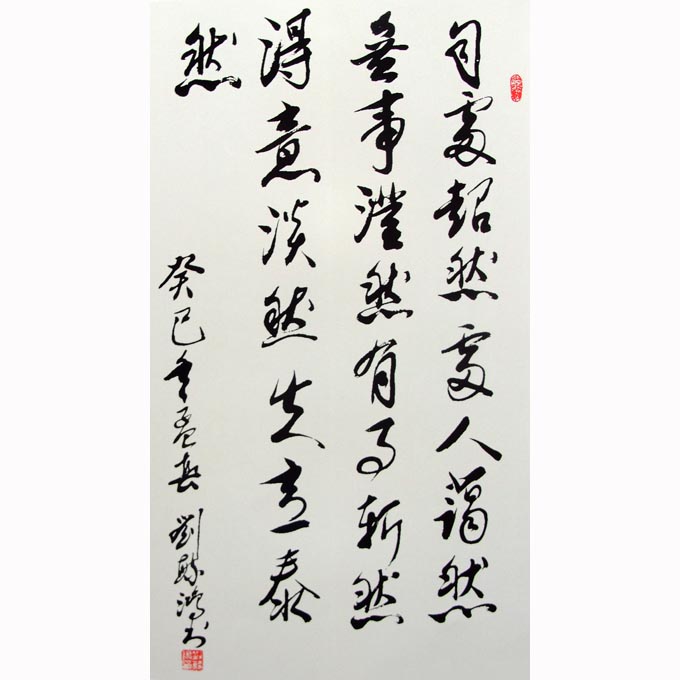 自處超然處人藹然
無事澄然有事斬然
得意淡然失意泰
然
癸巳年孟春 劉鴻书